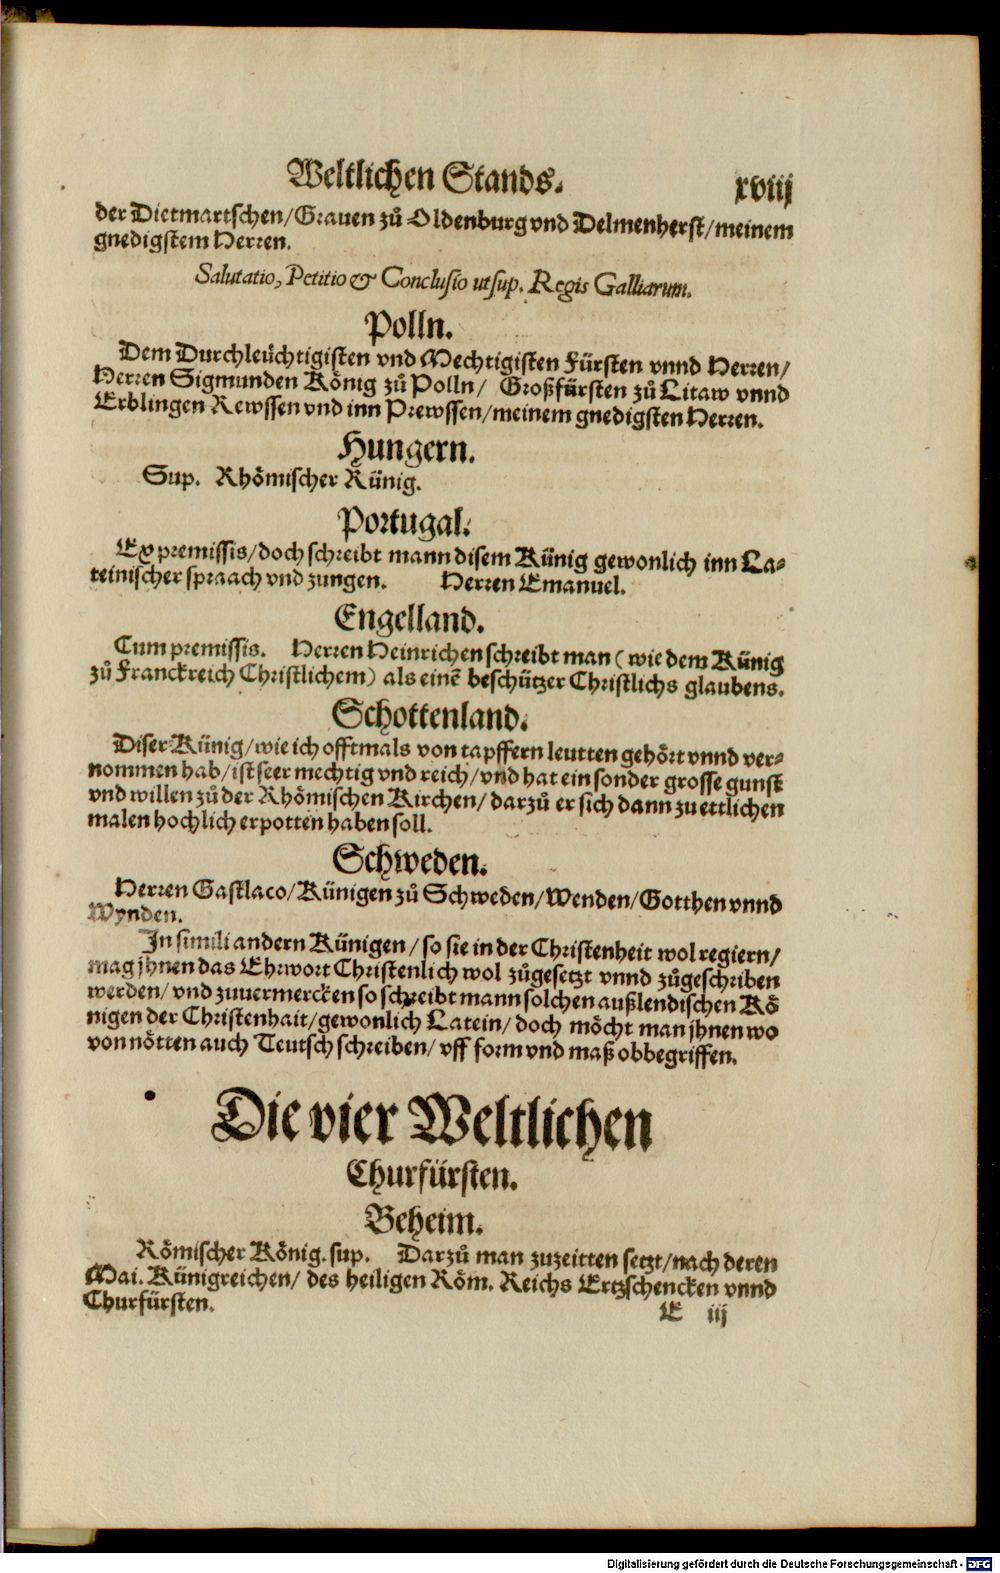 Weltlichen Stands. xviij
der Dietmartschen/Grauen zů Oldenburg vnd Delmenherst/meinem
gnedigstem Herren.
Salutatio, Petitio & Conclusio ut sup. Regis Galliarum.
Polln.
Dem Durchleüchtigisten vnd Mechtigisten Fürsten vnnd Herren/
Herren Sigmunden König zů Polln/ Großfürsten zů Litaw vnnd
Erblingen Rewssen vnd inn Prewssen/meinem gnedigsten Herren.
Hungern.
Sup. Rhömischer Künig.
Portugal.
Ex premissis/doch schreibt mann disem Künig gewonlich inn La⸗
teinischer spraach vnd zungen. Herren Emanuel.
Engelland.
Cum premissis. Herren Heinrichen schreibt man (wie dem Künig
zů Franckreich Christlichem) als einē beschützer Christlichs glaubens.
Schottenland.
Diser Künig/wie ich offtmals von tapffern leutten gehört vnnd ver⸗
nommen hab/ist seer mechtig vnd reich/vnd hat ein sonder grosse gunst
vnd willen zů der Rhömischen Kirchen/darzů er sich dann zu ettlichen
malen hochlich erpotten haben soll.
Schweden.
Herren Gastlaco/Künigen zů Schweden/Wenden/Gotthen vnnd
Wynden.
In simili andern Künigen/so sie in der Christenheit wol regiern/
mag jhnen das Ehrwort Christenlich wol zůgesetzt vnnd zůgeschriben
werden/vnd zuuermercken so schreibt mann solchen außlendischen Kö
nigen der Christenhait/gewonlich Latein/doch möcht man jhnen wo
von nötten auch Teutsch schreiben/vff form vnd maß obbegriffen.
Die vier Weltlichen
Churfürsten.
Beheim.
Römischer König. sup. Darzů man zuzeitten setzt/nach deren
Mai. Künigreichen/des heiligen Röm. Reichs Ertzschencken vnnd
Churfürsten.
E iij
Digitalisierung gefördert durch die Deutsche Forschungsgemeinschaft - DFG